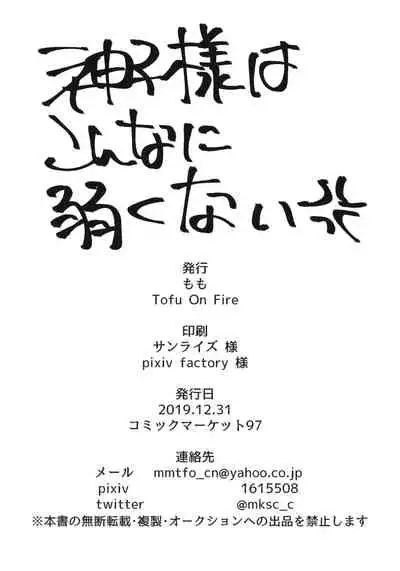 神子様は
こんなに
弱くない
発行
もも
Tofu On Fire
印刷
サンライズ 様
pixiv factory 様
発行日
2019.12.31
コミックマーケット97
連絡先
メール mmtfo_cn@yahoo.co.jp
pixiv 1615508
twitter @mksc_c
※本書の無断転載･複製･オークションへの出品を禁止します